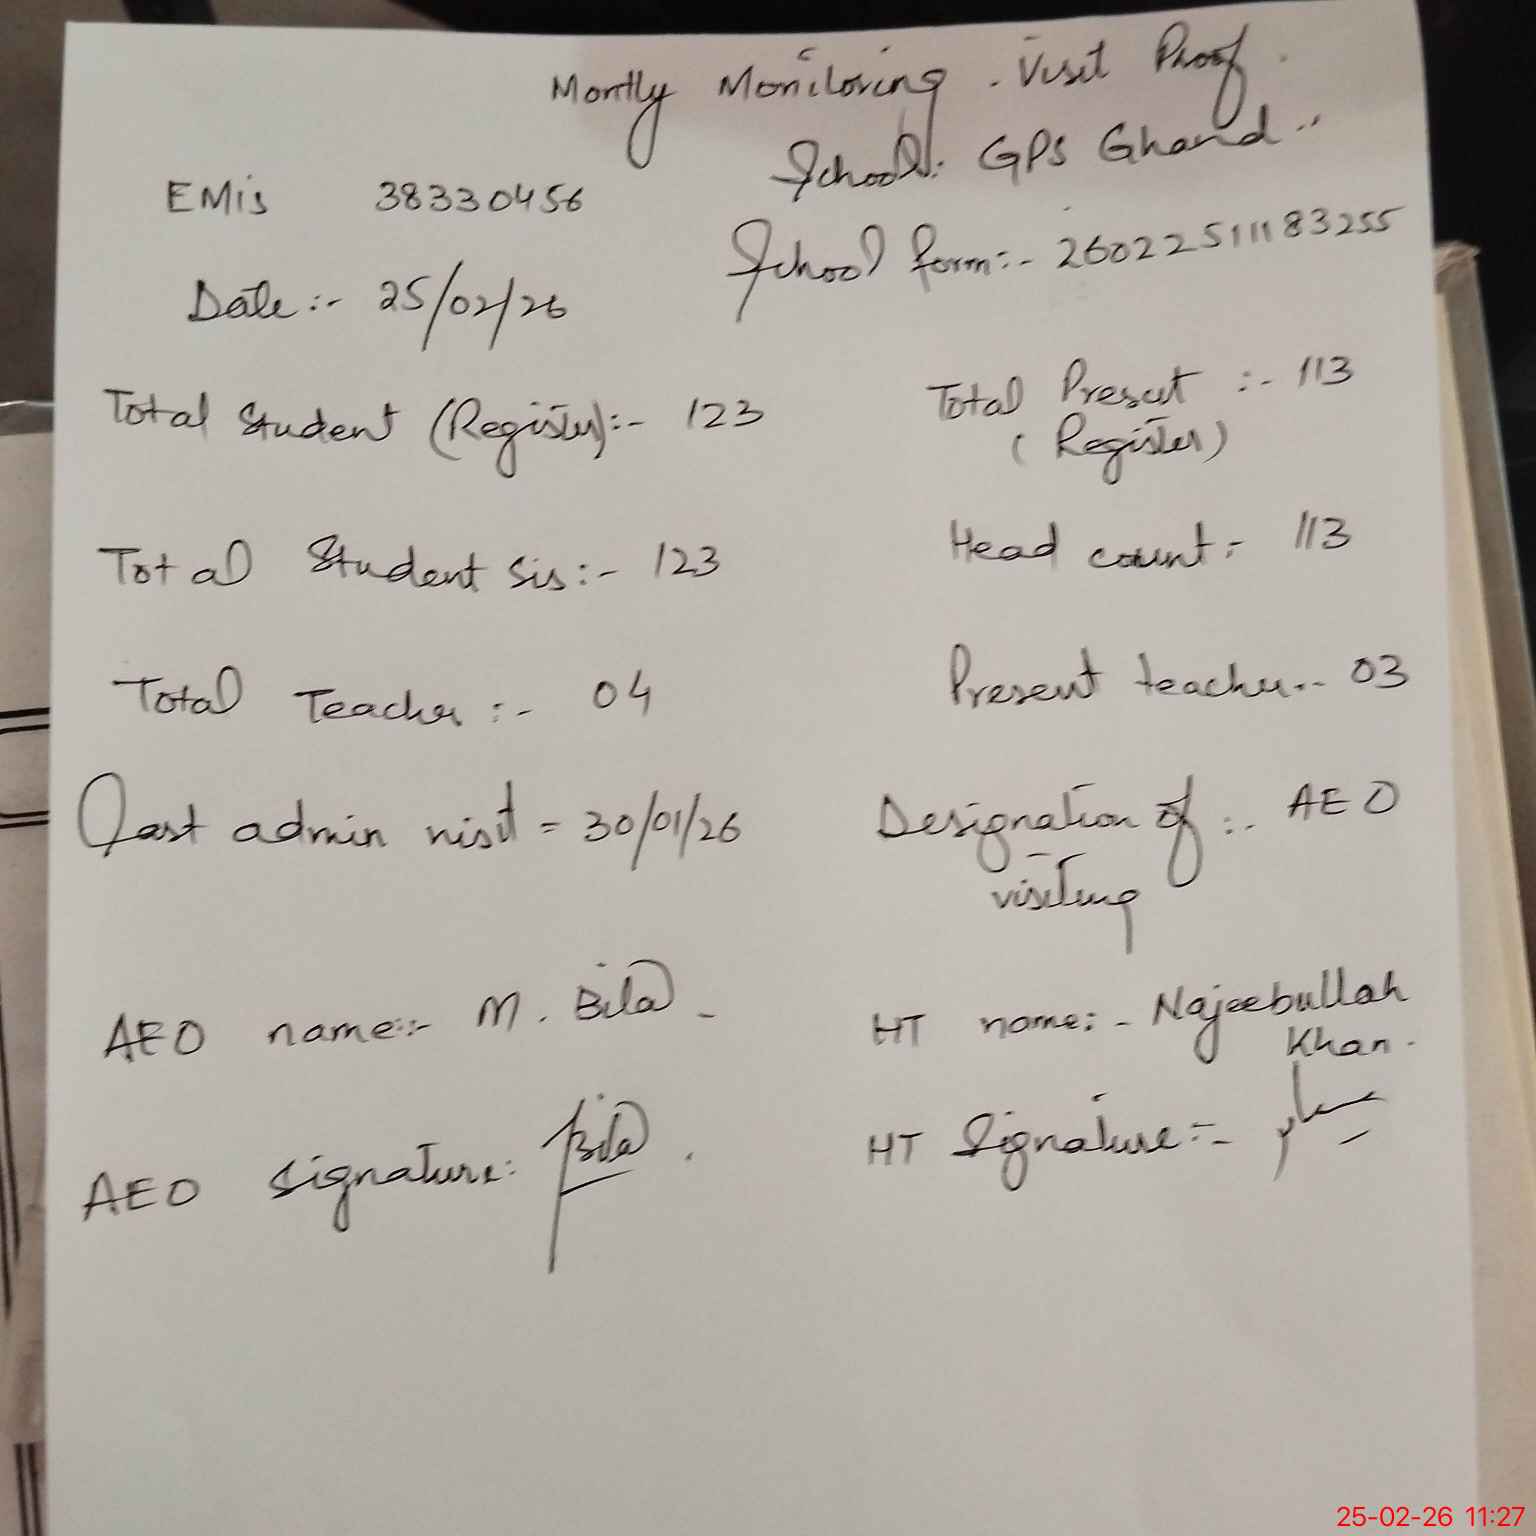 Montly Monitoring . Visit Proof .
School: GPS Ghand
EMis 38330456
School form:- 260225111183255
Date :- 25/02/26
Total Student (Register):- 123
Total Present :- 113
(Register)
Total Student Sis :- 123
Head count :- 113
Total Teacher :- 04
Present teacher :- 03
Last admin visit = 30/01/26
Designation of :- AEO
visiting
AEO name :- M. Bilal -
HT name :- Najeebullah
Khan .
AEO signature : Bilal .
HT Signature :-
25-02-26 11:27